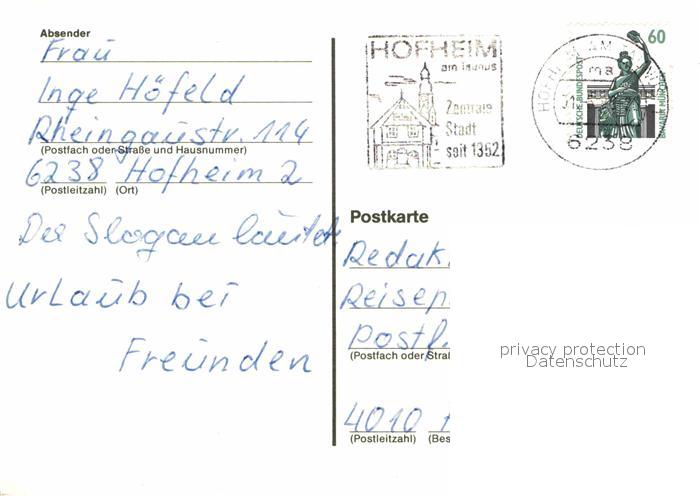 Absender
Frau
Inge Höfeld
Rheingaustr. 114
(Postfach oder Straße und Hausnummer)
6238 Hofheim 2
(Postleitzahl) (Ort)
Der Slogan lautet
Urlaub bei
Freunden
HOFHEIM
am Taunus
Zentrale
Stadt
seit 1352
HOFHEIM AM
ma
6238
60
DEUTSCHE BUNDESPOST
BAVARIA MÜNCHEN
Postkarte
Redak.
Reisep
Postf.
(Postfach oder Straß
4010
(Postleitzahl) (Bes
privacy protection
Datenschutz